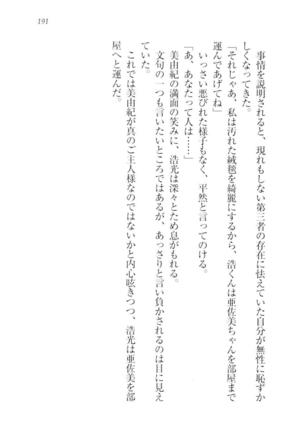 191
　事情を説明されると、現れもしない第三者の存在に怯えていた自分が無性に恥ずか
しくなってきた。
「それじゃあ、私は汚れた絨毯を綺麗にするから、浩くんは亜佐美ちゃんを部屋まで
運んであげてね」
　いっさい悪びれた様子もなく、平然と言ってのける。
「あ、あなたって人は……」
　美由紀の満面の笑みに、浩光は深々とため息がもれる。
　文句の一つも言いたいところではあるが、あっさりと言い負かされるのは目に見え
ていた。
　これでは美由紀が真のご主人様なのではないかと内心呟きつつ、浩光は亜佐美を部
屋へと運んだ。